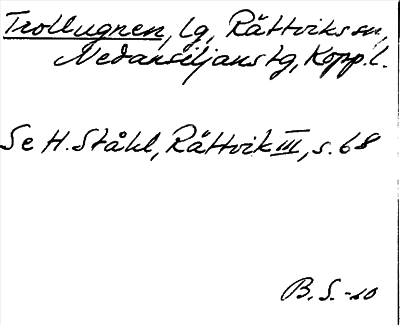 Trollugnen, lg, Rättviks sn,
Nedansiljans tg, Kopp. l.
Se H. Ståhl, Rättvik III, s. 68
B. S. -10